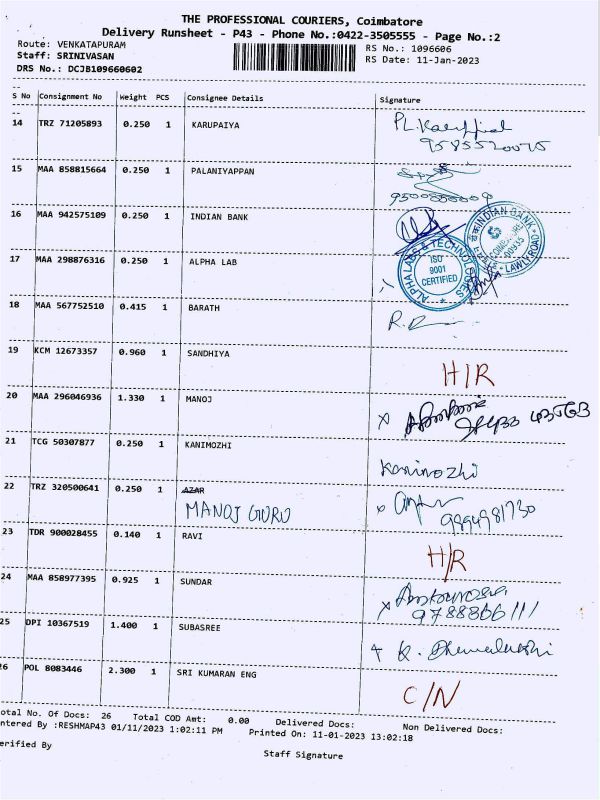 THE PROFESSIONAL COURIERS, Coimbatore
Delivery Runsheet - P43 - Phone No.:0422-3505555 - Page No.:2
Route: VENKATAPURAM
Staff: SRINIVASAN
DRS No.: DCJB109660602
RS No.: 1096606
RS Date: 11-Jan-2023
S No Consignment No Weight PCS Consignee Details Signature
14 TRZ 71205893 0.250 1 KARUPAIYA
9585520075
15 MAA 858815664 0.250 1 PALANIYAPPAN
16 MAA 942575109 0.250 1 INDIAN BANK
INDIAN BANK
LAWLY ROAD
17 MAA 298876316 0.250 1 ALPHA LAB
ALPHA LAB & TECHNOLOGIES
ISO
9001
CERTIFIED
18 MAA 567752510 0.415 1 BARATH
19 KCM 12673357 0.960 1 SANDHIYA
H/R
20 MAA 296046936 1.330 1 MANOJ
21 TCG 50307877 0.250 1 KANIMOZHI
Kanimozhi
22 TRZ 320500641 0.250 1 AZAR
MANOJ GURU
9894981730
23 TDR 900028455 0.140 1 RAVI
H/R
24 MAA 858977395 0.925 1 SUNDAR
9788866111
25 DPI 10367519 1.400 1 SUBASREE
26 POL 8083446 2.300 1 SRI KUMARAN ENG
C/N
otal No. Of Docs: 26 Total COD Amt: 0.00 Delivered Docs: Non Delivered Docs:
ntered By :RESHMAP43 01/11/2023 1:02:11 PM Printed On: 11-01-2023 13:02:18
erified By
Staff Signature